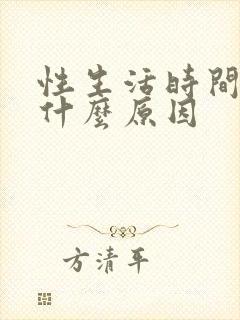 性生活時間
什麼原因
方清平